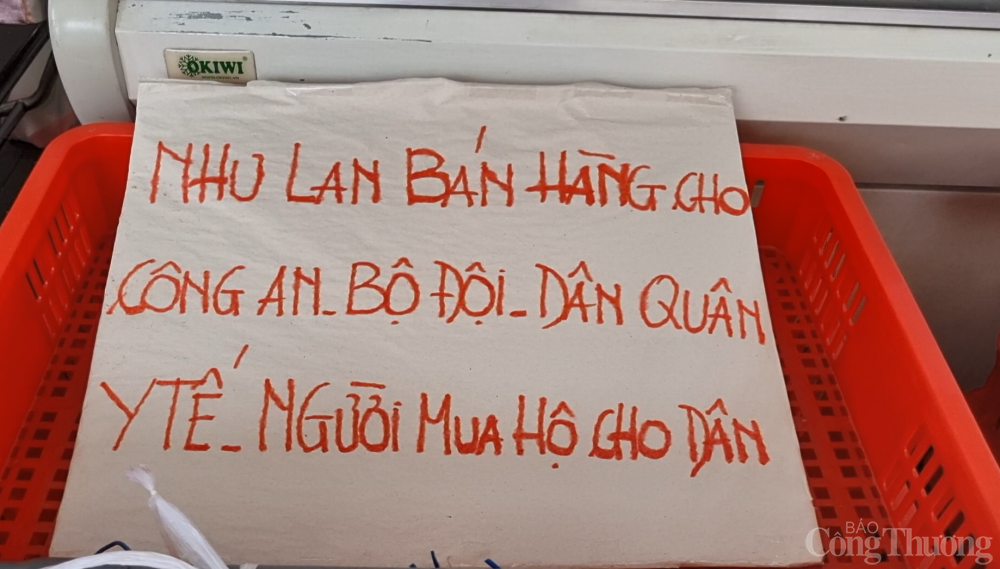 OKIWI
NHƯ LAN BÁN HÀNG CHO
CÔNG AN - BỘ ĐỘI - DÂN QUÂN
Y TẾ - NGƯỜI MUA HỘ CHO DÂN
BÁO
Công Thương